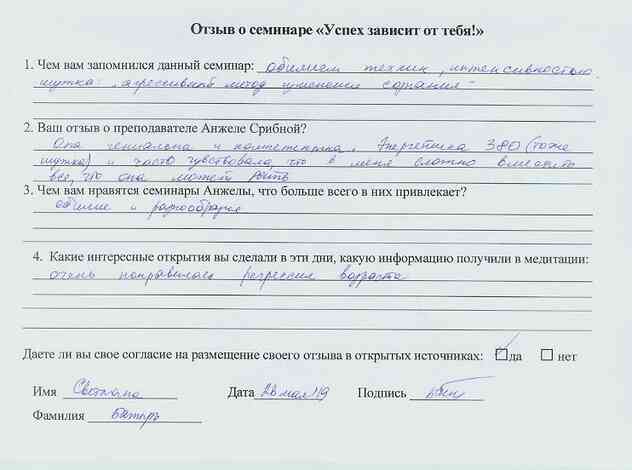 Отзыв о семинаре «Успех зависит от тебя!»
1. Чем вам запомнился данный семинар: обилием техник, интенсивностью.
шутка: "агрессивный метод сознания"
2. Ваш отзыв о преподавателе Анжеле Срибной?
Она гениальна и компетентна. Энергетика 380 (тоже
шутка) и часто чувствовала, что в меня сложно вместить
все, что она может дать
3. Чем вам нравятся семинары Анжелы, что больше всего в них привлекает?
обилие и разнообразие
4. Какие интересные открытия вы сделали в эти дни, какую информацию получили в медитации:
очень понравилась регрессия возраста
Даете ли вы свое согласие на размещение своего отзыва в открытых источниках: да нет
Имя Светлана Дата 26 мая 19 Подпись
Фамилия